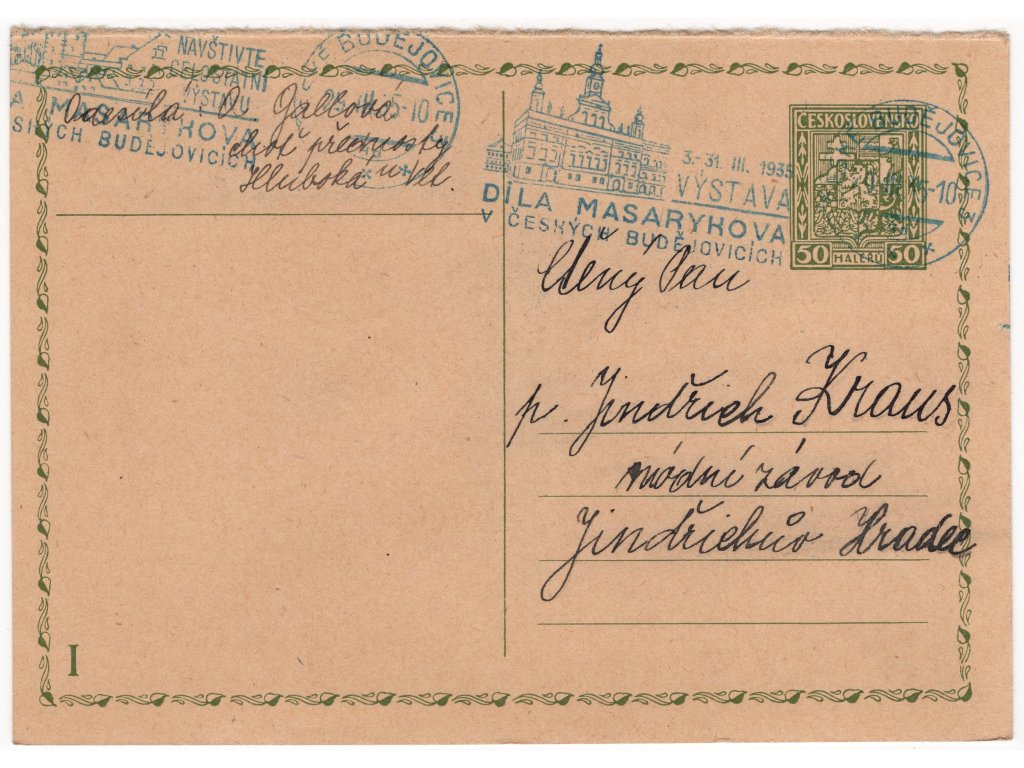 NAVŠTIVTE
CELOSTÁTNÍ
VÝSTAVU
MASARYKOVA
ČESKÝCH BUDĚJOVICÍCH
ČESKÉ BUDĚJOVICE
III. 35-10
Galbová
choť přednosty
Hluboká n/Vl.
3.-31. III. 1935
VÝSTAVA
DÍLA MASARYKOVA
V ČESKÝCH BUDĚJOVICÍCH
ČESKOSLOVENSKO
50 HALÉŘŮ 50
BUDĚJOVICE
Ctěný Pan
p. Jindřich Kraus
módní závod
Jindřichův Hradec
I